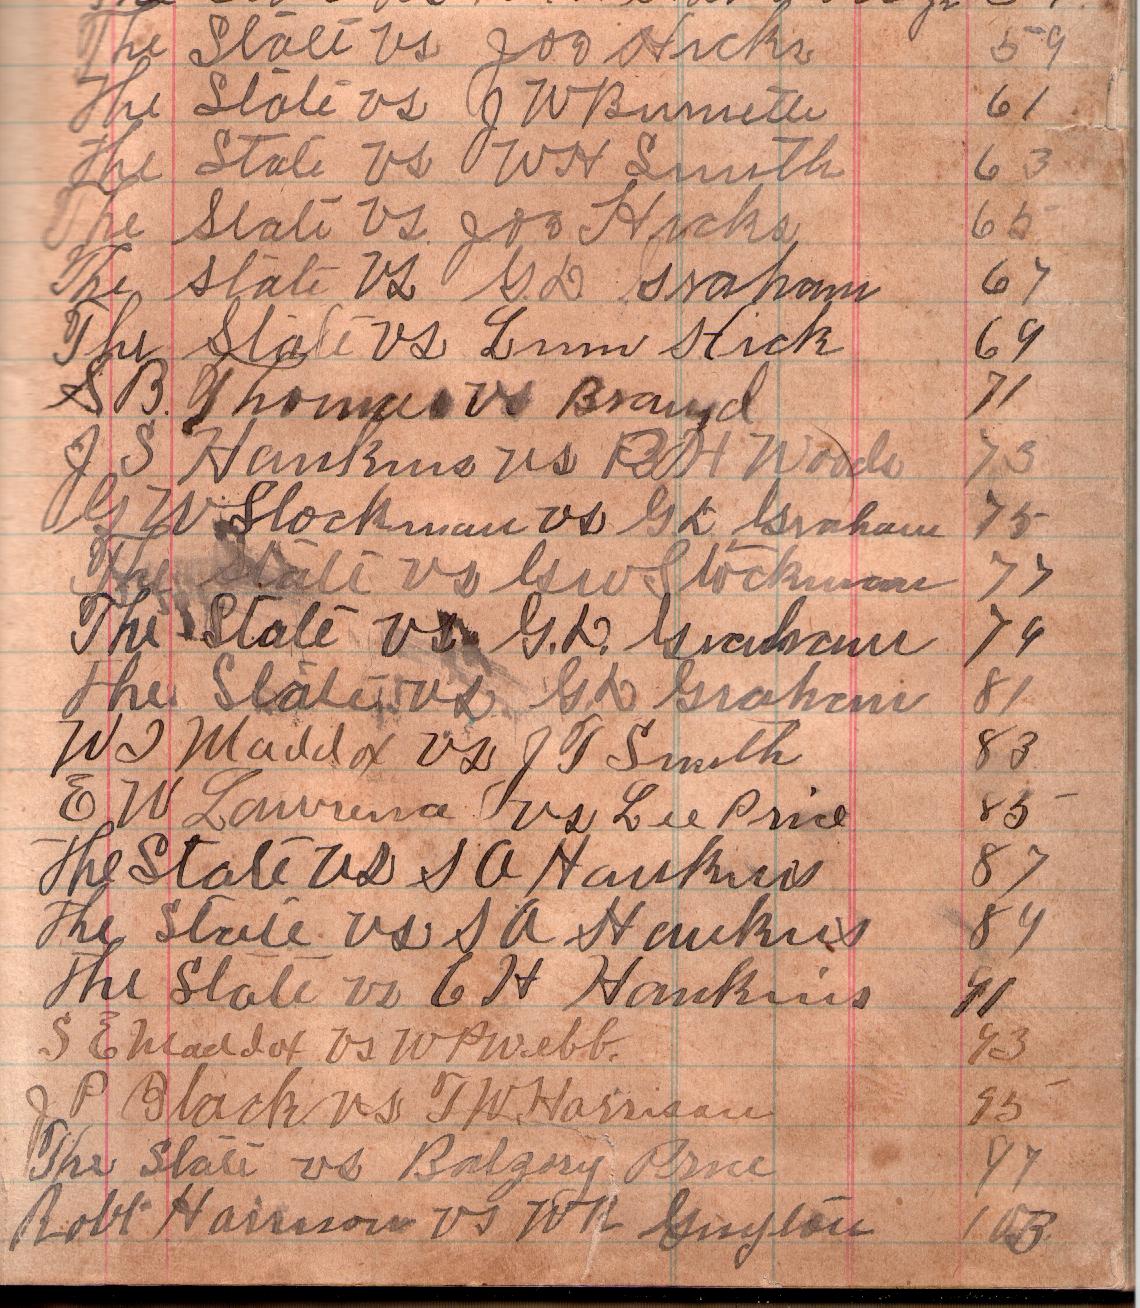 The State vs Joe Hicks 59
The State vs J W Burnette 61
The State vs W H Smith 63
The State vs Joe Hicks 65
The State vs G.D. Graham 67
The State vs Linn Hick 69
S B. Thomas vs Brauyd 71
J S Hankins vs R H Woods 73
G W Stockman vs G D Graham 75
The State vs G W Stockman 77
The State vs G.D. Graham 79
The State vs G D Graham 81
W I Maddox vs J T Smith 83
E W Lawrence vs Lee Price 85
The State vs S A Hankins 87
The State vs S A Hankins 89
The State vs C H Hankins 91
S E Maddox vs W P Webb. 93
J P Black vs T W Harrison 95
The State vs Balzory Price 97
Robt Harrison vs W R Guyton 103